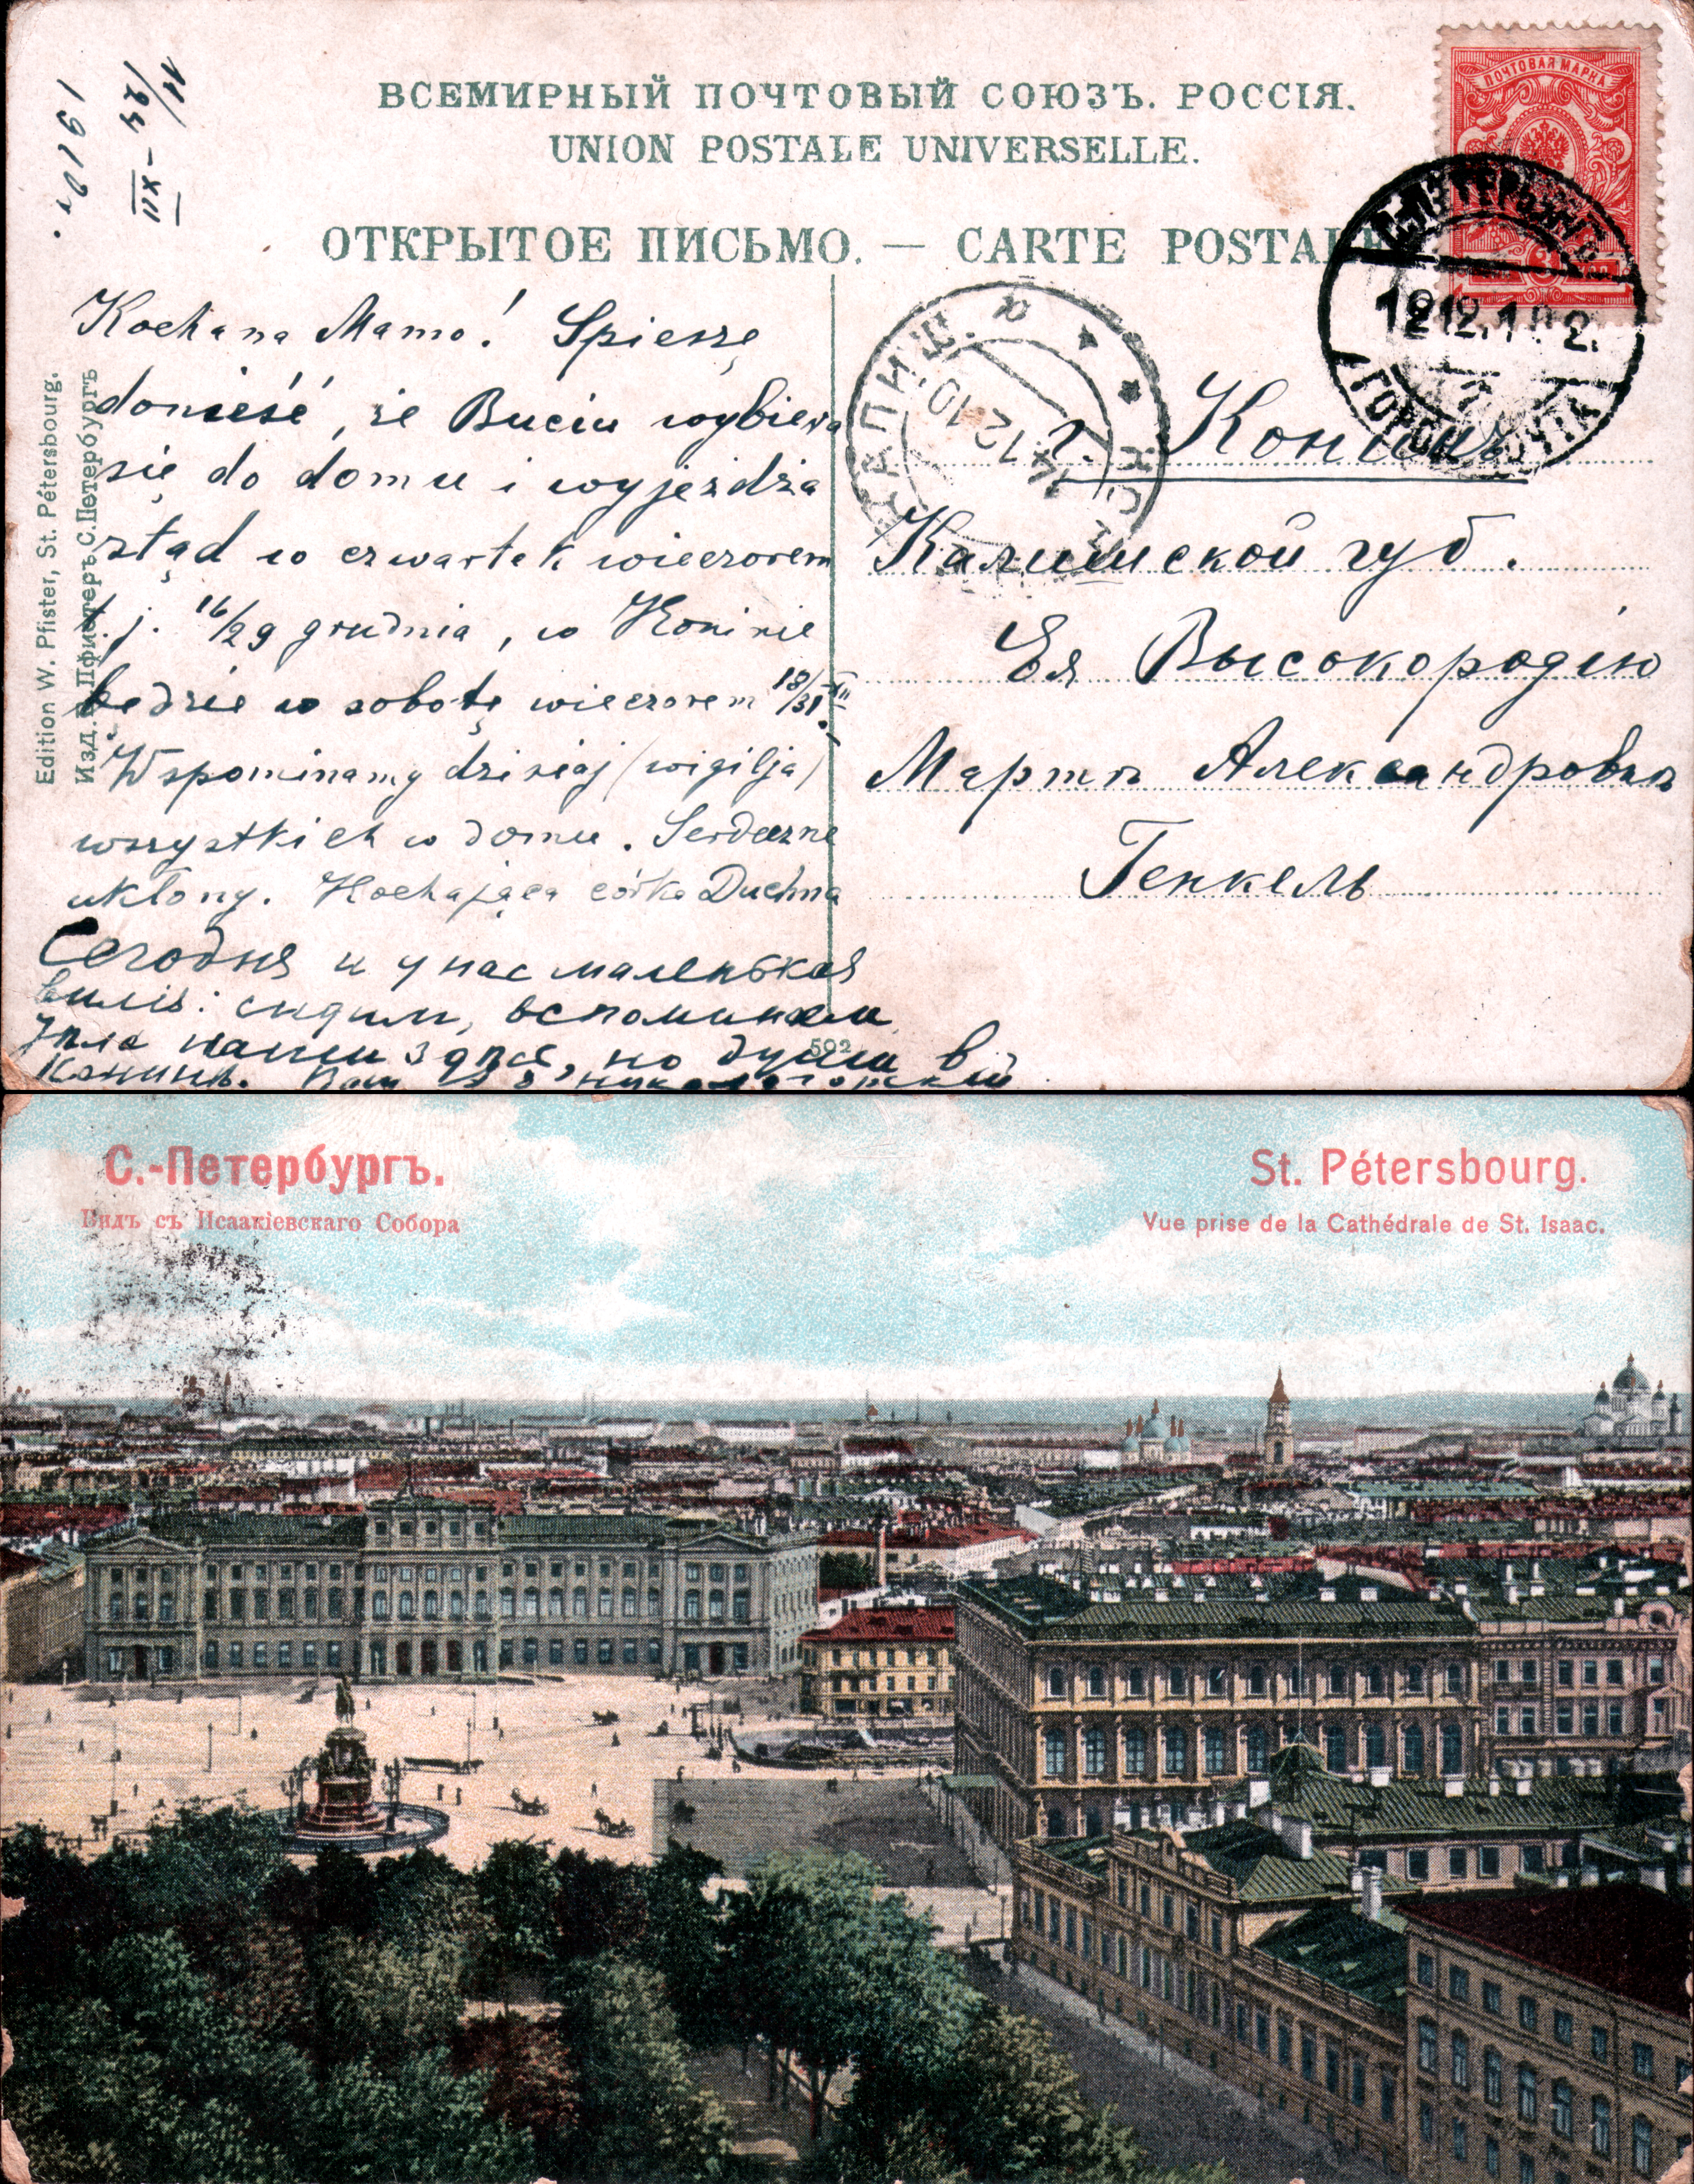 ВСЕМИРНЫЙ ПОЧТОВЫЙ СОЮЗЪ. РОССІЯ.
UNION POSTALE UNIVERSELLE.
ОТКРЫТОЕ ПИСЬМО. — CARTE POSTALE
ПОЧТОВАЯ МАРКА
11/24 - XII
1910 г.
Edition W. Pfister, St. Pétersbourg.
Изд. В. Пфистеръ С. Петербургъ
Kochana Mamo! Spieszę
donieść, że Buciu wybiera
się do domu i wyjeżdża
stąd w czwartek wieczorem
t. j. 16/29 grudnia, w Koninie
będzie w sobotę wieczorem 18/31 XII.
Wspominamy dzisiaj (wigilja)
wszystkich w domu. Serdeczne
ukłony. Kochająca córka Duchna
Сегодня и у нас маленькая
вилія: сидим, вспоминаем
тѣла наши здѣсь, но души в
Конинѣ.
С-ПЕТЕРБУРГЪ
12.12.10
ГОР. ПОЧТА
КАЛИШ.
14 12 10
г. Конинъ
Калишской губ.
Ея Высокородію
Мартѣ Александровнѣ
Генкель
592
С.-Петербургъ.
Видъ съ Исаакіевскаго Собора
St. Pétersbourg.
Vue prise de la Cathédrale de St. Isaac.